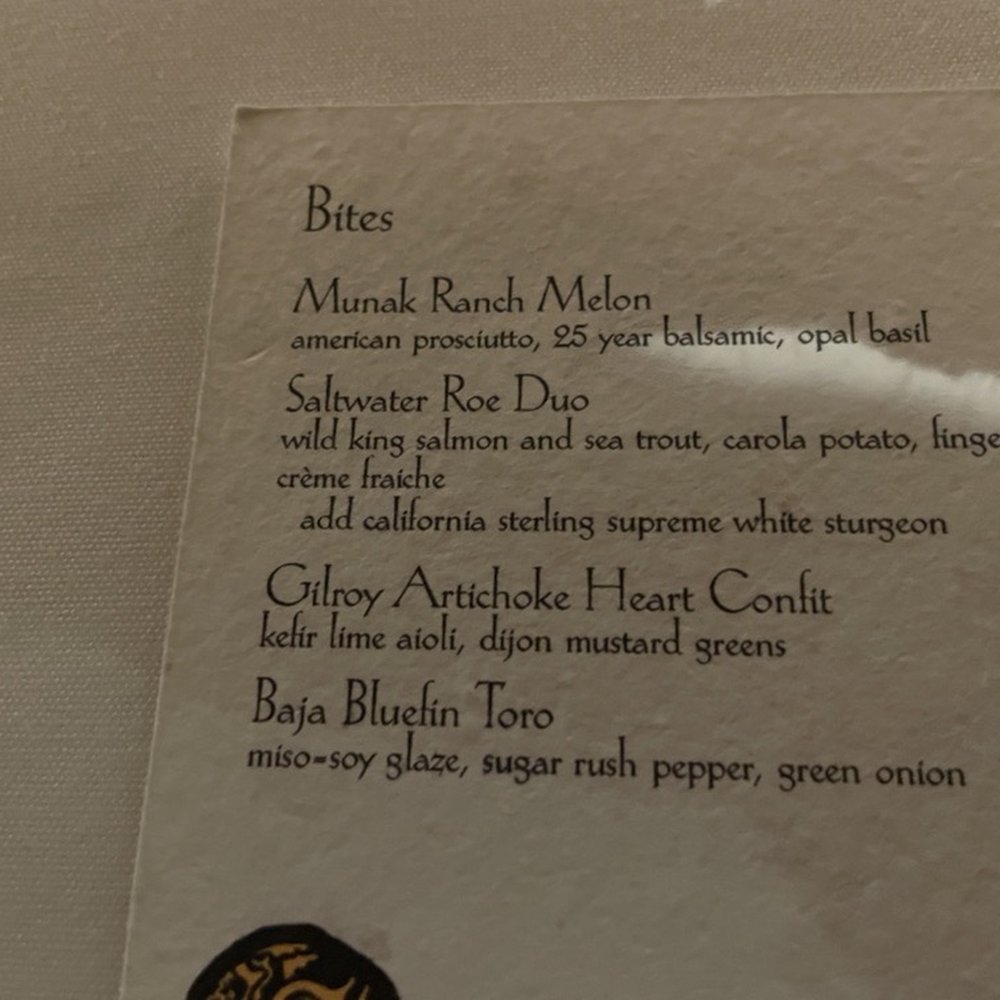 Bites
Munak Ranch Melon
american prosciutto, 25 year balsamic, opal basil
Saltwater Roe Duo
wild king salmon and sea trout, carola potato,
crème fraiche
add california sterling supreme white sturgeon
Gilroy Artichoke Heart Confit
kefir lime aioli, dijon mustard greens
Baja Bluefin Toro
miso-soy glaze, sugar rush pepper, green onion